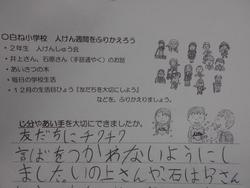 〇白ね小学校 人けん週間をふりかえろう
・2年生 人けんしゅう会
・井上さん、石原さん(手話通やく)のお話
・あいさつの木
・毎日の学校生活
・12月の生活目ひょう『友だちを大切にしよう』
などを、ふりかえりましょう。
じ分やあい手を大切にできましたか。
友だちにチクチク
言ばをつかわないようにし
ました。いの上さんや、石はらさん